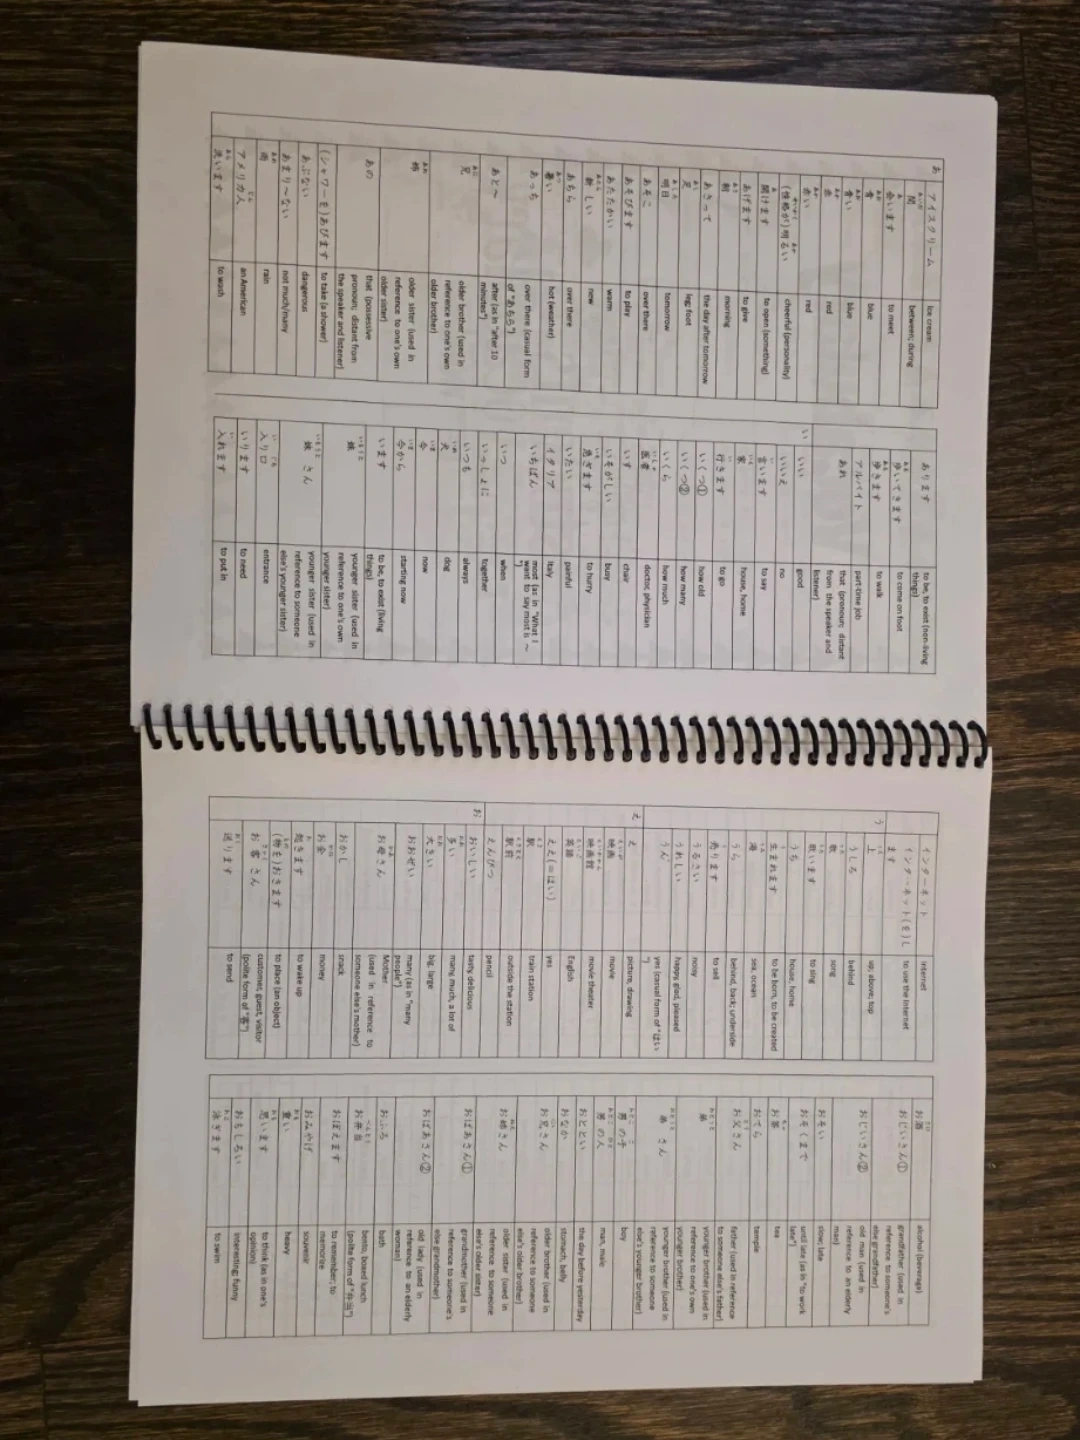 あ アイスクリーム Ice cream
間 between; during
会います to meet
青 blue
青い blue
赤 red
赤い red
(性格が)明るい cheerful (personality)
開けます to open (something)
あげます to give
朝 morning
あさって the day after tomorrow
足 leg; foot
明日 tomorrow
あそこ over there
あそびます to play
あたたかい warm
新しい new
あちら over there
暑い hot (weather)
あっち over there (casual form
of "あちら")
あと〜 after (as in "after 10
minutes")
兄 older brother (used in
reference to one's own
older brother)
姉 older sister (used in
reference to one's own
older sister)
あの that (possessive
pronoun; distant from
the speaker and listener)
(シャワーを)あびます to take (a shower)
あぶない dangerous
あまり〜ない not much/many
雨 rain
アメリカ人 an American
洗います to wash
あります to be, to exist (non-living
things)
歩いてきます to come on foot
歩きます to walk
アルバイト part-time job
あれ that (pronoun; distant
from the speaker and
listener)
い いい good
いいえ no
言います to say
家 house, home
行きます to go
いくつ① how old
いくつ② how many
いくら how much
医者 doctor, physician
いす chair
いそがしい busy
急ぎます to hurry
いたい painful
イタリア Italy
いちばん most (as in "What I
want to say most is 〜
")
いつ when
いっしょに together
いつも always
犬 dog
今 now
今から starting now
います to be, to exist (living
things)
妹 younger sister (used in
reference to one's own
younger sister)
妹さん younger sister (used in
reference to someone
else's younger sister)
入り口 entrance
いります to need
入れます to put in
インターネット internet
インターネット(を)し to use the internet
ます
う 上 up; above; top
うしろ behind
歌 song
歌います to sing
うち house, home
生まれます to be born, to be created
海 sea, ocean
うら behind, back; underside
売ります to sell
うるさい noisy
うれしい happy, glad, pleased
うん yes (casual form of "はい
")
え え picture, drawing
映画 movie
映画館 movie theater
英語 English
ええ(=はい) yes
駅 train station
駅前 outside the station
えんぴつ pencil
お おいしい tasty, delicious
多い many, much, a lot of
大きい big, large
おおぜい many (as in "many
people")
お母さん Mother
(used in reference to
someone else's mother)
おかし snack
お金 money
起きます to wake up
(物を)おきます to place (an object)
お客さん customer, guest, visitor
(polite form of "客")
送ります to send
お酒 alcohol (beverage)
おじいさん① grandfather (used in
reference to someone's
else grandfather)
おじいさん② old man (used in
reference to an elderly
man)
おそい slow; late
おそくまで until late (as in "to work
late")
お茶 tea
おてら temple
お父さん father (used in reference
to someone else's father)
弟 younger brother (used in
reference to one's own
younger brother)
弟さん younger brother (used in
reference to someone
else's younger brother)
男の子 boy
男の人 man, male
おととい the day before yesterday
おなか stomach, belly
お兄さん older brother (used in
reference to someone
else's older brother)
お姉さん older sister (used in
reference to someone
else's older sister)
おばあさん① grandmother (used in
reference to someone's
else grandmother)
おばあさん② old lady (used in
reference to an elderly
woman)
おふろ bath
お弁当 bento, boxed lunch
(polite form of "弁当")
おぼえます to remember; to
memorize
おみやげ souvenir
重い heavy
思います to think (as in one's
opinion)
おもしろい interesting; funny
泳ぎます to swim